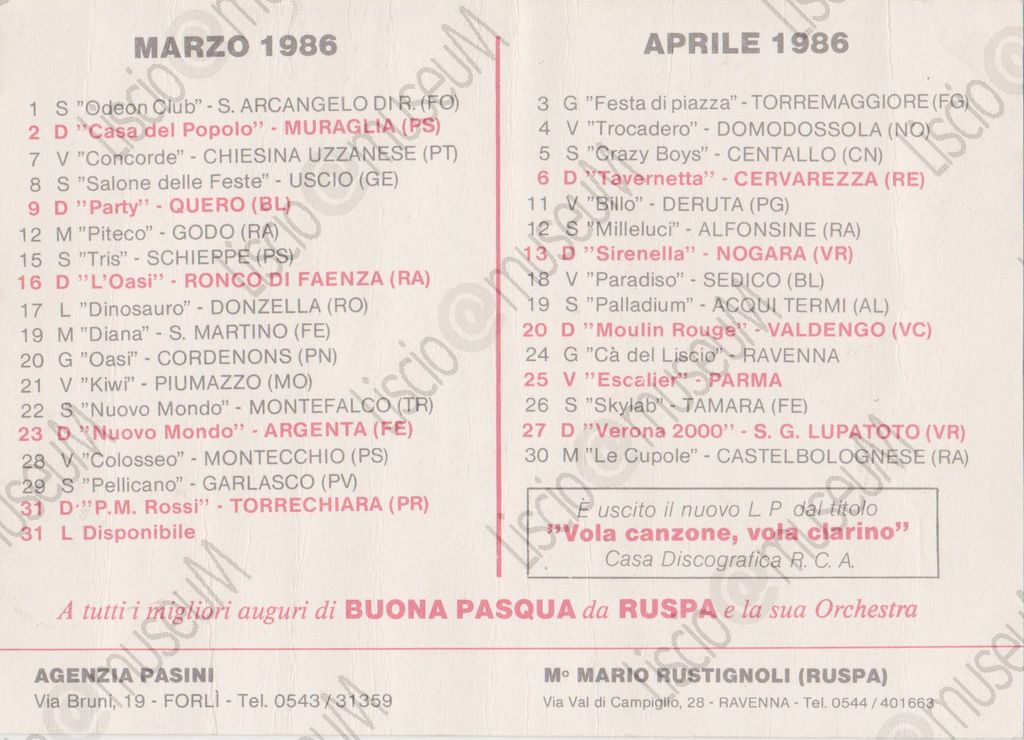 MARZO 1986
1 S "Odeon Club" - S. ARCANGELO DI R. (FO)
2 D "Casa del Popolo" - MURAGLIA (PS)
7 V "Concorde" - CHIESINA UZZANESE (PT)
8 S "Salone delle Feste" - USCIO (GE)
9 D "Party" - QUERO (BL)
12 M "Piteco" - GODO (RA)
15 S "Tris" - SCHIEPPE (PS)
16 D "L'Oasi" - RONCO DI FAENZA (RA)
17 L "Dinosauro" - DONZELLA (RO)
19 M "Diana" - S. MARTINO (FE)
20 G "Oasi" - CORDENONS (PN)
21 V "Kiwi" - PIUMAZZO (MO)
22 S "Nuovo Mondo" - MONTEFALCO (TR)
23 D "Nuovo Mondo" - ARGENTA (FE)
28 V "Colosseo" - MONTECCHIO (PS)
29 S "Pellicano" - GARLASCO (PV)
31 D "P.M. Rossi" - TORRECHIARA (PR)
31 L Disponibile
APRILE 1986
3 G "Festa di piazza" - TORREMAGGIORE (FG)
4 V "Trocadero" - DOMODOSSOLA (NO)
5 S "Crazy Boys" - CENTALLO (CN)
6 D "Tavernetta" - CERVAREZZA (RE)
11 V "Billo" - DERUTA (PG)
12 S "Milleluci" - ALFONSINE (RA)
13 D "Sirenella" - NOGARA (VR)
18 V "Paradiso" - SEDICO (BL)
19 S "Palladium" - ACQUI TERMI (AL)
20 D "Moulin Rouge" - VALDENGO (VC)
24 G "Cà del Liscio" - RAVENNA
25 V "Escalier" - PARMA
26 S "Skylab" - TAMARA (FE)
27 D "Verona 2000" - S. G. LUPATOTO (VR)
30 M "Le Cupole" - CASTELBOLOGNESE (RA)
È uscito il nuovo L. P. dal titolo
"Vola canzone, vola clarino"
Casa Discografica R. C. A.
A tutti i migliori auguri di BUONA PASQUA da RUSPA e la sua Orchestra
AGENZIA PASINI
Via Bruni, 19 - FORLÌ - Tel. 0543/31359
Mº MARIO RUSTIGNOLI (RUSPA)
Via Val di Campiglio, 28 - RAVENNA - Tel. 0544/401663
Liscio@museuM